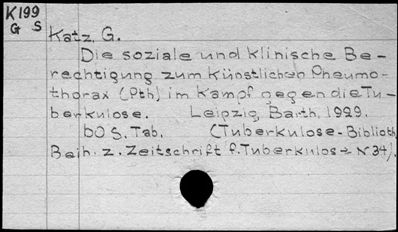 K199
G S
Katz, G.
Die soziale und klinische Be-
rechtigung zum künstlichen Pneumo-
thorax (Pth) im Kampf gegen die Tu-
berkulose. Leipzig, Barth, 1929.
60 S. Tab. (Tuberkulose-Biblioth.
Beih. z. Zeitschrift f. Tuberkulose N 34).